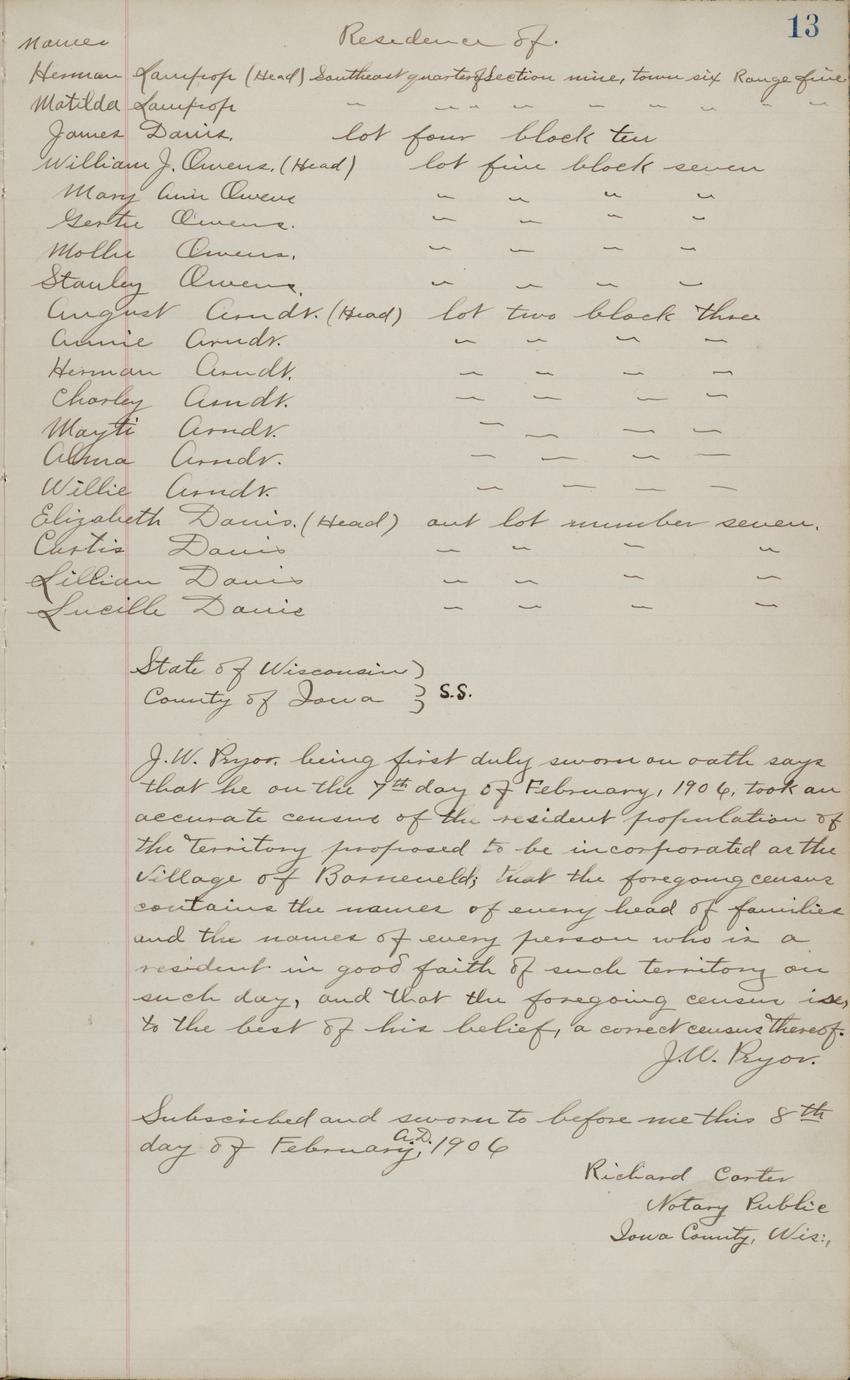 13
Names Residence of.
Herman Lampop (Head) Southeast quarter of Section nine, town six Range five
Matilda Lampop " " " " " " " " "
James Davis. lot four block ten
William J. Owens. (Head) lot five block seven
Mary Ann Owens " " " "
Gertie Owens. " " " "
Mollie Owens. " " " "
Stanley Owens. " " " "
August Arndt. (Head) lot two block three
Annie Arndt. " " " "
Herman Arndt. " " " "
Charley Arndt. " " " "
Mayti Arndt. " " " "
Alma Arndt. " " " "
Willie Arndt. " " " "
Elizabeth Davis. (Head) out lot number seven.
Curtis Davis " " " "
Lillian Davis " " " "
Lucille Davis " " " "
State of Wisconsin }
County of Iowa } S.S.
J.W. Pryor. being first duly sworn on oath says
that he on the 7th day of February, 1906, took an
accurate census of the resident population of
the territory proposed to be incorporated as the
Village of Barneveld; that the foregoing census
contains the names of every head of families
and the names of every person who is a
resident in good faith of such territory on
such day, and that the foregoing census is,
to the best of his belief, a correct census thereof.
J.W. Pryor.
Subscribed and sworn to before me this 8th
day of February, A.D. 1906
Richard Carter
Notary Public
Iowa County, Wis.,